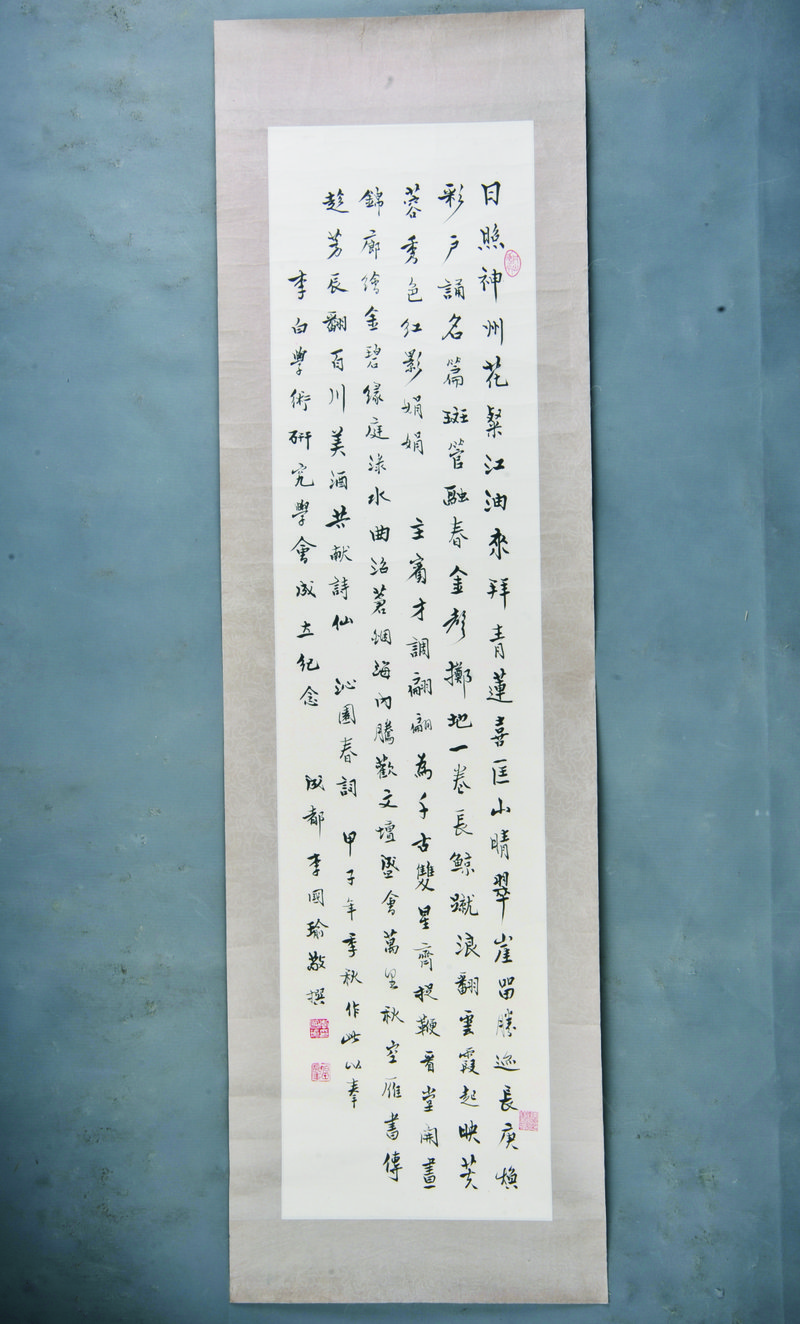 日照神州花粲江油來拜青蓮喜匡山晴翠崖留勝迹長庚煥
彩戶誦名篇斑管融春金聲擲地一卷長鯨蹴浪翻雲霞起映芙
蓉秀色紅影娟娟 主賓才調翩翩為千古雙星齊捉鞭看堂開畫
錦廊繪金碧緣庭淥水曲沼蒼煙海內騰歡文壇盛會萬里秋空雁書傳
趁芳辰翻百川美酒共献詩仙 沁園春詞 甲子年季秋作此以奉
李白學術研究學會成立紀念 成都李國瑜敬撰